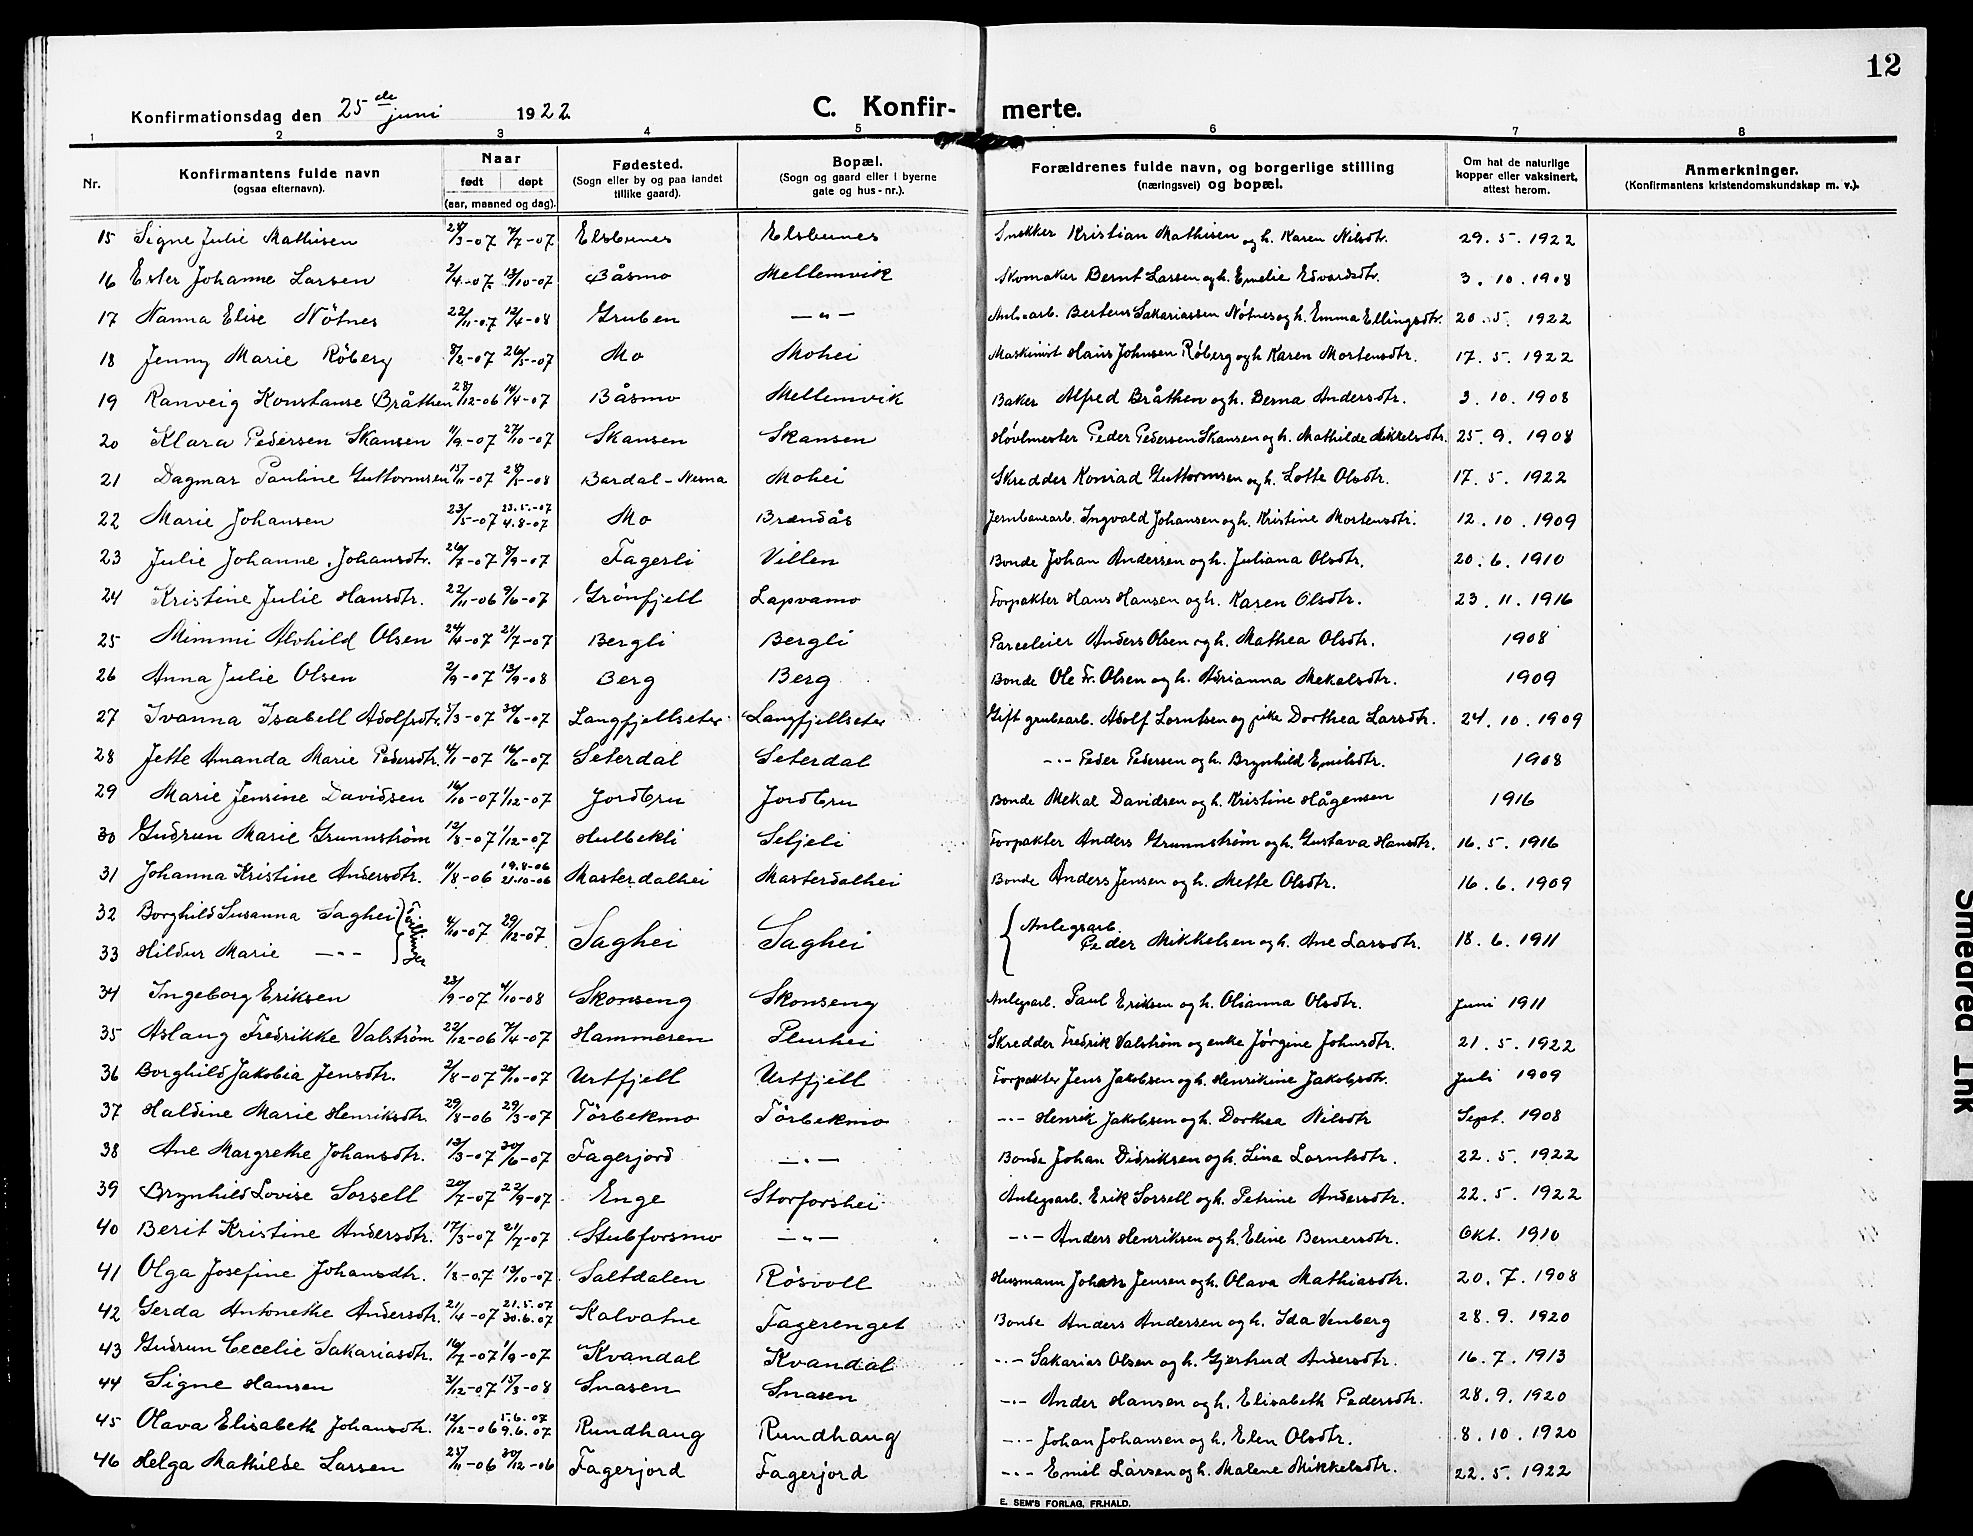 12
Konfirmationsdag den 25de juni 1922
C. Konfirmerte.
1 2 3 4 5 6 7 8
Nr. Konfirmantens fulde navn (ogsaa efternavn). Naar født døpt (aar, maaned og dag). Fødested. (Sogn eller by og paa landet tillike gaard). Bopæl. (Sogn og gaard eller i byerne gate og hus-nr.). Forældrenes fulde navn, og borgerlige stilling (næringsvei) og bopæl. Om hat de naturlige kopper eller vaksinert, attest herom. Anmerkninger. (Konfirmantens kristendomskundskap m. v.).
15 Signe Julie Mathisen 24/3-07 7/7-07 Elsbunes Elsbunes Snekker Kristian Mathisen og h. Karen Nilsdtr. 29.5.1922
16 Ester Johanne Larsen 2/4-07 13/10-07 Båsmo Mellemvik Skomaker Bernt Larsen og h. Emelie Edvardsdtr. 3.10.1908
17 Nanna Elise Nötnes 22/11-07 12/4-08 Gruben —„— Anl.arb. Bertens Sakariassen Nötnes og h. Emma Ellingsdtr. 20.5.1922
18 Jenny Marie Röberg 8/2-07 26/5-07 Mo Mohei Maskinist Hans Johnsen Röberg og h Karen Mortensdtr. 17.5.1922
19 Ranveig Konstanse Bråthen 28/12-06 14/4-07 Båsmo Mellemvik Baker Alfred Bråthen og h. Berna Andersdtr. 3.10.1908
20 Klara Pedersen Skansen 11/9-07 27/10-07 Skansen Skansen Høvlmester Peder Pedersen Skansen og h. Mathilde Mikkelsdtr. 25.9.1908
21 Dagmar Pauline Guttormsen 15/11-07 24/5-08 Bardal-Nesna Mohei Skredder Konrad Guttormsen og h. Lotte Olsdtr. 17.5.1922
22 Marie Johansen 23/5-07 23.5.-07 4.8-07 Mo Brændås Jernbanearb. Ingvald Johansen og h. Kristine Mortensdtr. 12.10.1909
23 Julie Johanne Johansdtr. 26/7-07 8/9-07 Fagerli Villen Bonde Johan Andersen og h. Juliana Olsdtr. 20.6.1910
24 Kristine Julie Hansdtr. 22/11-06 9/6-07 Grönfjell Lapvamo Forpakter Hans Hansen og h. Karen Olsdtr. 23.11.1916
25 Mimmi Alvhild Olsen 24/4-07 21/7-07 Bergli Bergli Parceleier Anders Olsen og h. Mathea Olsdtr. 1908
26 Anna Julie Olsen 2/9-07 13/9-08 Berg Berg Bonde Ole Fr. Olsen og h. Adrianna Mekalsdtr. 1909
27 Ivanna Isabell Adolfsdtr. 5/3-07 30/6-07 Langfjellseter Langfjellseter Gift grubearb. Adolf Lorntsen og pike Dorthea Larsdtr. 24.10.1909
28 Jette Amanda Marie Pedersdtr. 4/1-07 16/6-07 Seterdal Seterdal —„— Peder Pedersen og h. Brynhild Emilsdtr. 1908
29 Marie Jensine Davidsen 16/10-07 1/12-07 Jordbru Jordbru Bonde Mekal Davidsen og h. Kristine Hågensen 1916
30 Gudrun Marie Grunnstrøm 12/8-07 1/12-07 Hulbekli Seljeli Forpakter Anders Grunnstrøm og h. Gustava Hansdtr. 16.5.1916
31 Johanna Kristine Andersdtr. 11/8-06 19.8-06 21-10-06 Masterdalhei Masterdalhei Bonde Anders Jensen og h. Mette Olsdtr. 16.6.1909
32 Borghild Susanna Saghei Tvillinger 4/10-07 29/12-07 Saghei Saghei Anlegsarb. Peder Mikkelsen og h. Ane Larsdtr. 18.6.1911
33 Hildur Marie —„—
34 Ingeborg Eriksen 23/9-07 4/10-08 Skonseng Skonseng Anlegarb. Paul Eriksen og h. Olianna Olsdtr. Juni 1911
35 Aslaug Fredrikke Valstrøm 22/12-06 7/4-07 Hammeren Plurhei Skredder Fredrik Valstrøm og enke Jørgine Johnsdtr. 21.5.1922
36 Borghild Jakobia Jensdtr. 2/8-07 20/10-07 Urtfjell Urtfjell Forpakter Jens Jakobsen og h. Henrikine Jakobsdtr. Juli 1909
37 Haldine Marie Henriksdtr. 29/8-06 29/3-07 Törbekmo Törbekmo —„— Henrik Jakobsen og h. Dorthea Nilsdtr Sept. 1908
38 Ane Margrethe Johansdtr. 13/3-07 30/6-07 Fagerjord —„— Bonde Johan Didriksen og h. Lina Lorntsdtr. 22.5.1922
39 Brynhild Lovise Sorsell 20/7-07 22/9-07 Enge Storforshei Anlegsarb. Erik Sorsell og h. Petrine Andersdtr. 22.5.1922
40 Berit Kristine Andersdtr. 17/3-07 21/7-07 Stubforsmo —„— —„— Anders Henriksen og h. Eline Bernersdtr. Okt. 1910
41 Olga Josefine Johansdtr. 1/8-07 13/10-07 Saltdalen Røsvoll Husmann Johan Jensen og h. Olava Mathiasdtr. 20.7.1908
42 Gerda Antonethe Andersdtr. 21/4-07 21.5.07 30.6.07 Kalvatne Fagerenget Bonde Anders Andersen og h. Ida Venberg 28.9.1920
43 Gudrun Cecelie Sakariasdtr. 16/7-07 1/9-07 Kvandal Kvandal —„— Sakarias Olsen og h. Gjertrud Andersdtr. 16.7.1913
44 Signe Hansen 3/12-07 15/3-08 Snasen Snasen —„— Ander Hansen og h. Elisabeth Pedersdtr. 28.9.1920
45 Olava Elisabeth Johansdtr. 12/12-06 5.6.07 9.6.07 Rundhaug Rundhaug —„— Johan Johansen og h. Elen Olsdtr. 8.10.1920
46 Helga Mathilde Larsen 25/11-06 30/12-06 Fagerjord Fagerjord —„— Emil Larsen og h. Malene Mikkelsdtr. 22.5.1922
E. SEM'S FORLAG, FR.HALD.
Smedred Ink